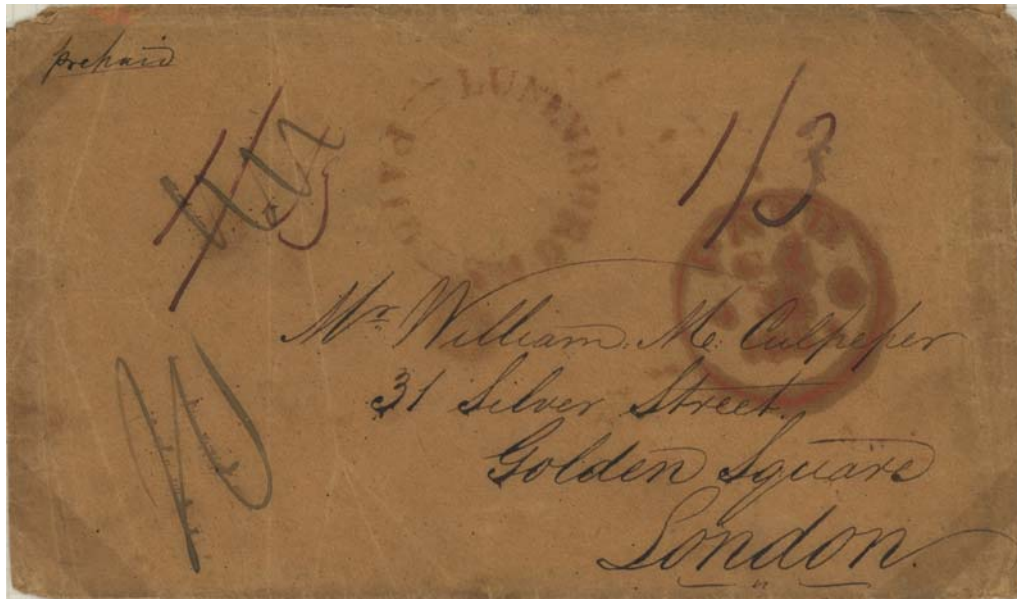 prepaid
1/3
1/3
PAID
Mr. William. M. Culpeper
31 Silver Street,
Golden Square
London.